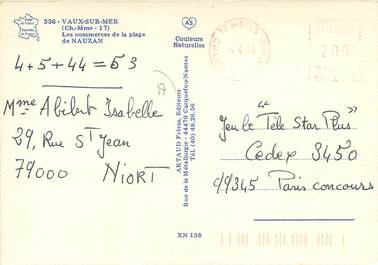 336 - VAUX-SUR-MER
(Ch.-Mme - 17)
Les commerces de la plage
de NAUZAN
4+5+44=53
17
Mme Abibert Isabelle
29, Rue St Jean
79000 NIORT
AS
Couleurs
Naturelles
ARTAUD Frères, Editeurs
Rue de la Métallurgie - 44470 Carquefou-Nantes
Tél. (40) 49.26.56
XN 158
200
"
Jeu le Télé Star Plus"
Cedex 3450
99345 Paris concours